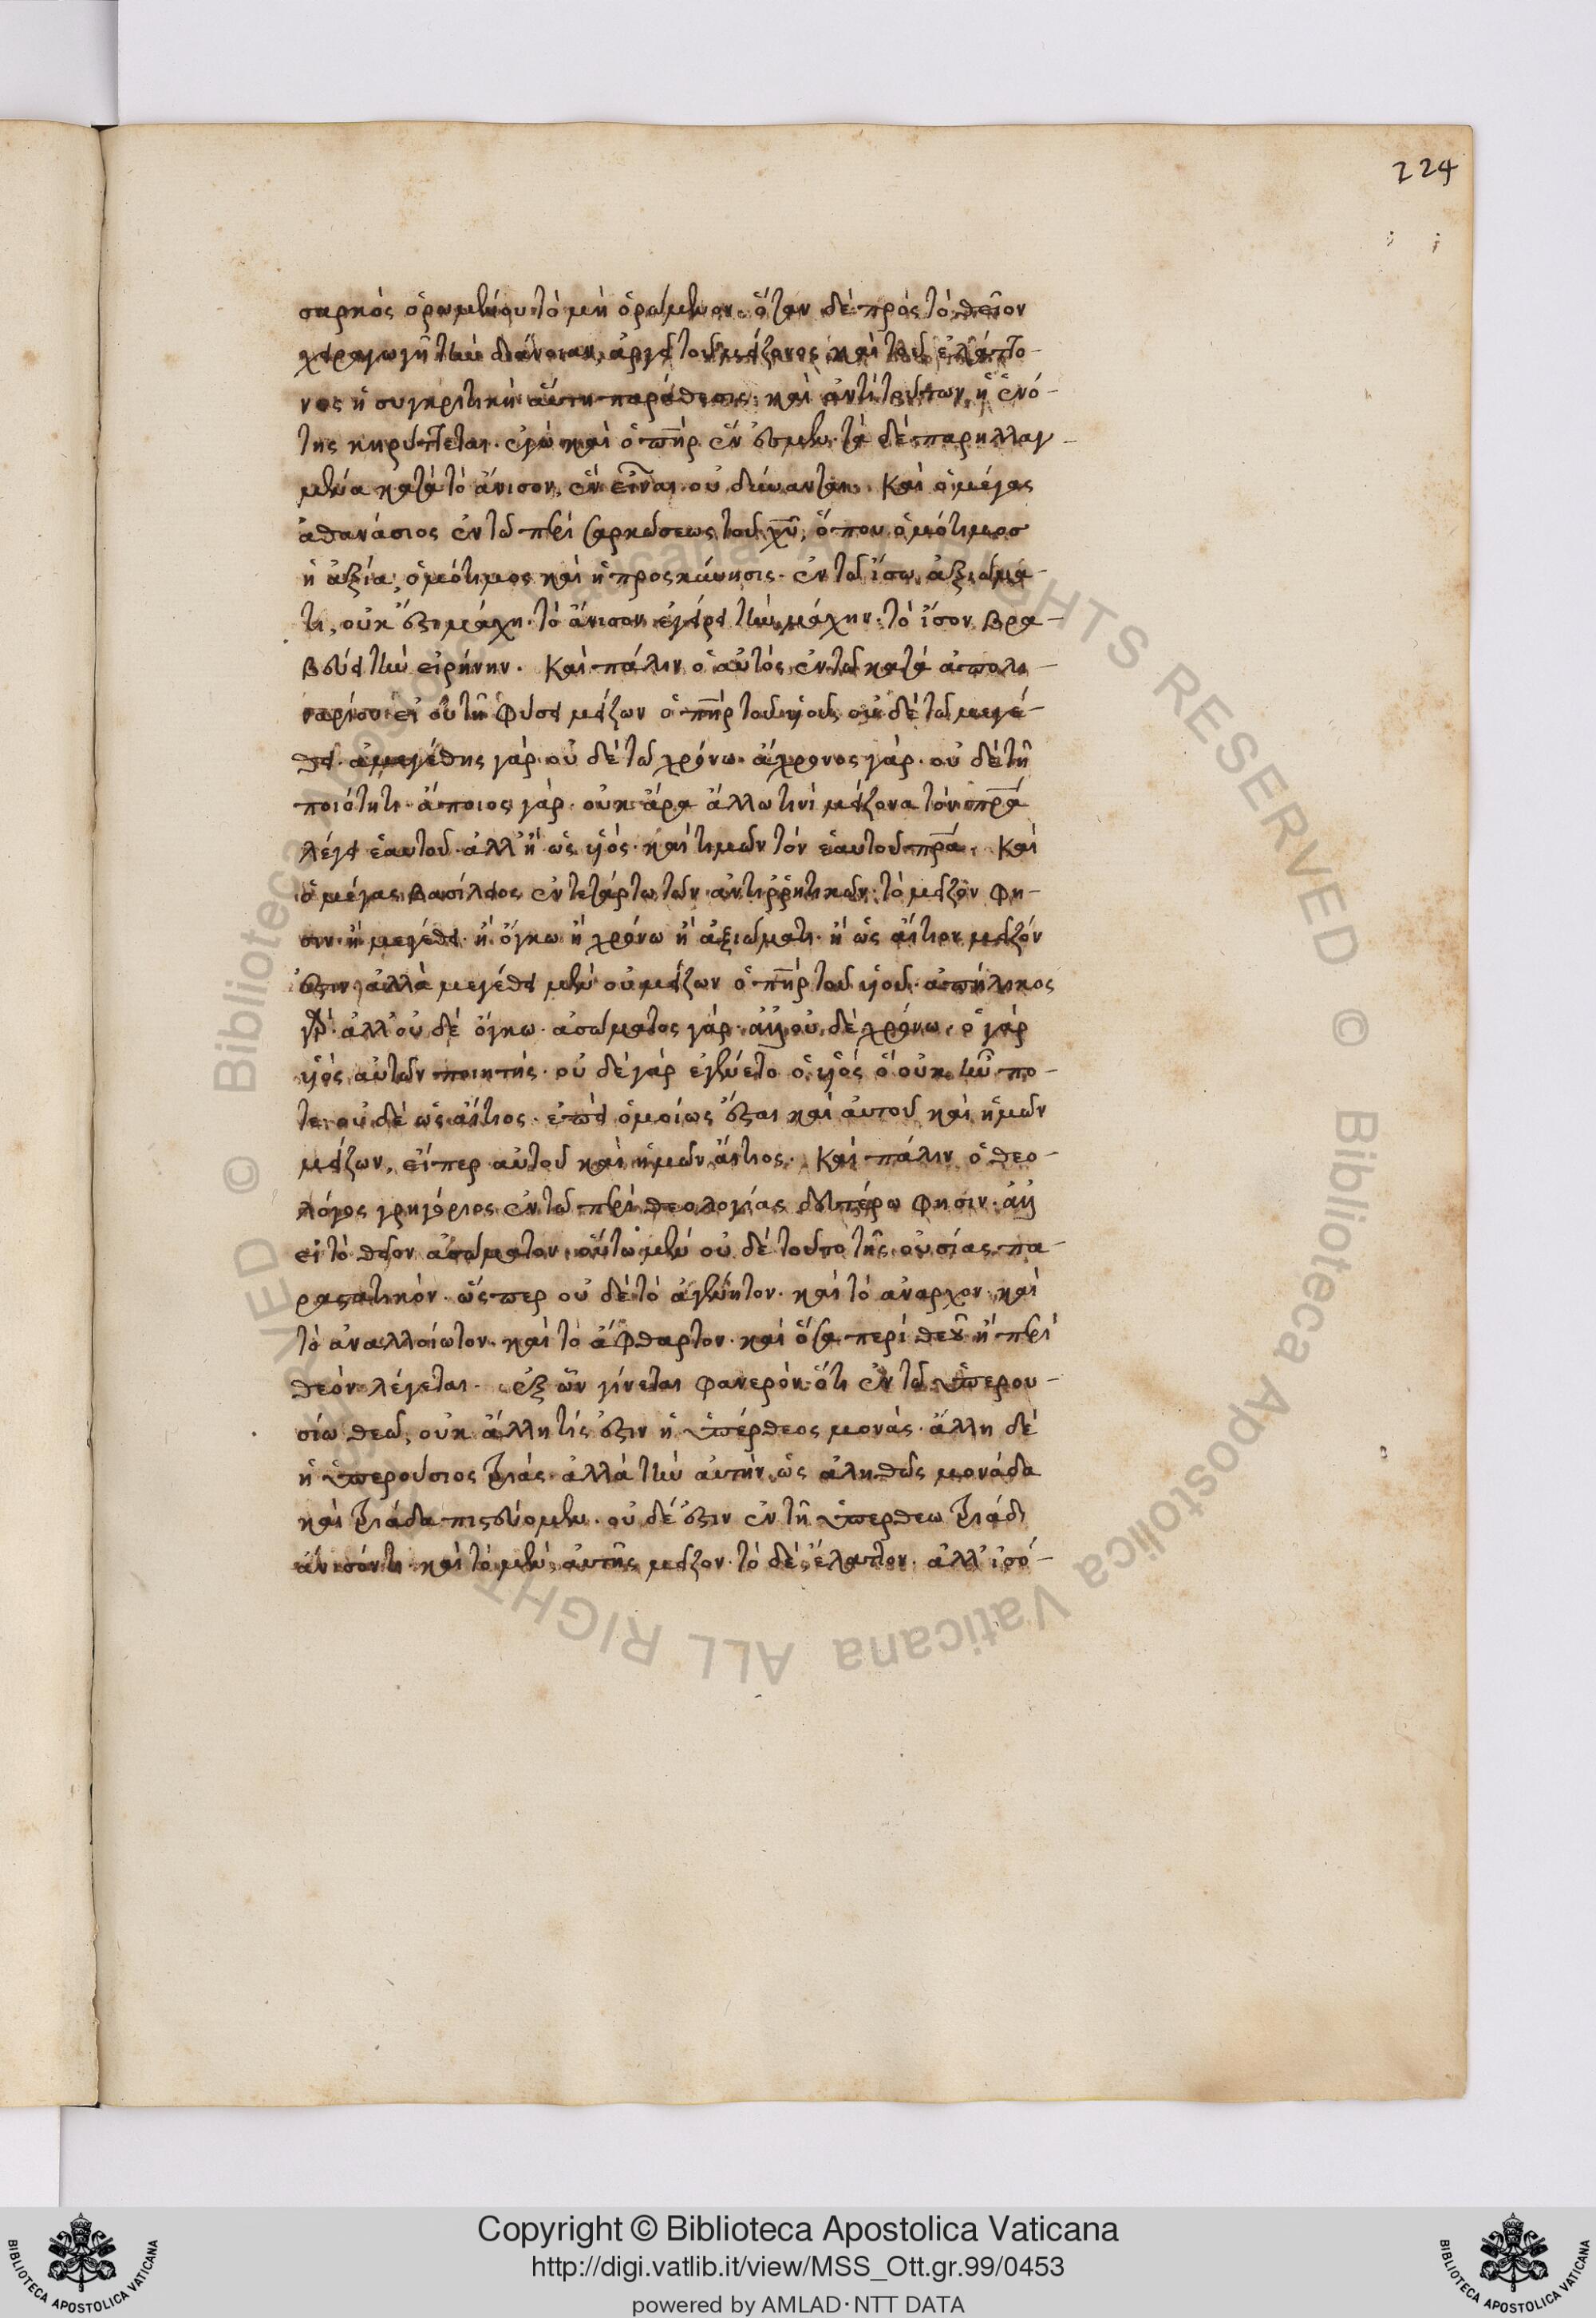 224
σαρκὸς ὁρωμένου τὸ μὴ ὁρώμενον. ὅταν δὲ πρὸς τὸ θεῖον
χειραγωγῆ τὴν διάνοιαν, ἀργεῖ τοῦ μείζονος καὶ τοῦ ἐλάττο-
νος ἡ συγκριτικὴ αὕτη παράθεσις· καὶ ἀντὶ τούτων, ἡ ἑνό-
της κηρύττεται. ἐγὼ καὶ ὁ π̅η̅ρ ἕν ἐσμεν. τὰ δὲ παρηλλαγ-
μένα κατὰ τὸ ἄνισον, ἓν εἶναι οὐ δύνανται. Καὶ ὁ μέγας
ἀθανάσιος ἐν τῶ περὶ σαρκώσεως τοῦ χ̅υ̅, ὅπου ὁμότιμος
ἡ ἀξία, ὁμότιμος καὶ ἡ προσκύνησις. ἐν τῶ ἴσω ἀξιώμα-
τι, οὐκ ἔστι μάχη. τὸ ἄνισον ἐγείρει τὴν μάχην· τὸ ἴσον βρα-
βεύει τὴν εἰρήνην. Καὶ πάλιν ὁ αὐτὸς ἐν τῶ κατὰ ἀπολι-
ναρίου· εἰ οὐ τῆ φύσει μείζων ὁ π̅η̅ρ τοῦ υἱοῦ, οὐδὲ τῶ μεγέ-
θει. ἀμεγέθης γάρ. οὐδὲ τῶ χρόνω. ἄχρονος γάρ. οὐδὲ τῆ
ποιότητι. ἄποιος γάρ. οὐκ ἄρα ἄλλω τινὶ μείζονα τὸν π̅ρ̅α
λέγει ἑαυτοῦ. ἀλλ' ἢ ὡς υἱός. καὶ τιμῶν τὸν ἑαυτοῦ π̅ρ̅α. Καὶ
ὁ μέγας βασίλειος ἐν τετάρτω τῶν ἀντιρρητικῶν· τὸ μεῖζον φη-
σιν· ἢ μεγέθει. ἢ ὄγκω ἢ χρόνω ἢ ἀξιώματι. ἢ ὡς αἴτιον μεῖζόν
ἐστιν· ἀλλὰ μεγέθει μὲν οὐ μείζων ὁ π̅η̅ρ τοῦ υἱοῦ. ἀπήλικος
γάρ. ἀλλ' οὐδὲ ὄγκω. ἀσώματος γάρ. ἀλλ' οὐδὲ χρόνω. ὁ γὰρ
υἱὸς αὐτῶν ποιητής. οὐδὲ γὰρ ἐγένετο ὁ υἱὸς ὃ οὐκ ἦν πο-
τε. οὐδὲ ὡς αἴτιος. ἐπεὶ ὁμοίως ἔσται καὶ αὐτοῦ καὶ ἡμῶν
μείζων, εἴπερ αὐτοῦ καὶ ἡμῶν αἴτιος. Καὶ πάλιν ὁ θεο-
λόγος γρηγόριος ἐν τῶ περὶ θεολογίας δευτέρω φησιν. ἀλλ'
εἰ τὸ θεῖον ἀσώματον. οὔπω μὲν οὐδὲ τοῦτο τῆς οὐσίας πα-
ραστατικόν. ὥσπερ οὐδὲ τὸ ἀγέννητον. καὶ τὸ ἄναρχον. καὶ
τὸ ἀναλλοίωτον. καὶ τὸ ἄφθαρτον. καὶ ὅσα περὶ θεοῦ ἢ περὶ
θεὸν λέγεται. ἐξ ὧν γίνεται φανερὸν ὅτι ἐν τῶ ὑπερου-
σίω θεῶ, οὐκ ἄλλη τίς ἐστιν ἡ ὑπέρθεος μονάς. ἄλλη δὲ
ἡ ὑπερούσιος τριάς. ἀλλὰ τὴν αὐτὴν ὡς ἀληθῶς μονάδα
καὶ τριάδα πιστεύομεν. οὐδέ ἐστιν ἐν τῆ ὑπερθέω τριάδι
ἄνισόν τι. καὶ τὸ μὲν αὐτῆς μεῖζον. τὸ δὲ ἔλαττον. ἀλλ' ἰσό-
Copyright © Biblioteca Apostolica Vaticana
http://digi.vatlib.it/view/MSS_Ott.gr.99/0453
powered by AMLAD·NTT DATA
BIBLIOTECA APOSTOLICA VATICANA
BIBLIOTECA APOSTOLICA VATICANA
© Biblioteca Apostolica Vaticana ALL RIGHTS RESERVED © Biblioteca Apostolica Vaticana ALL RIGHTS RESERVED